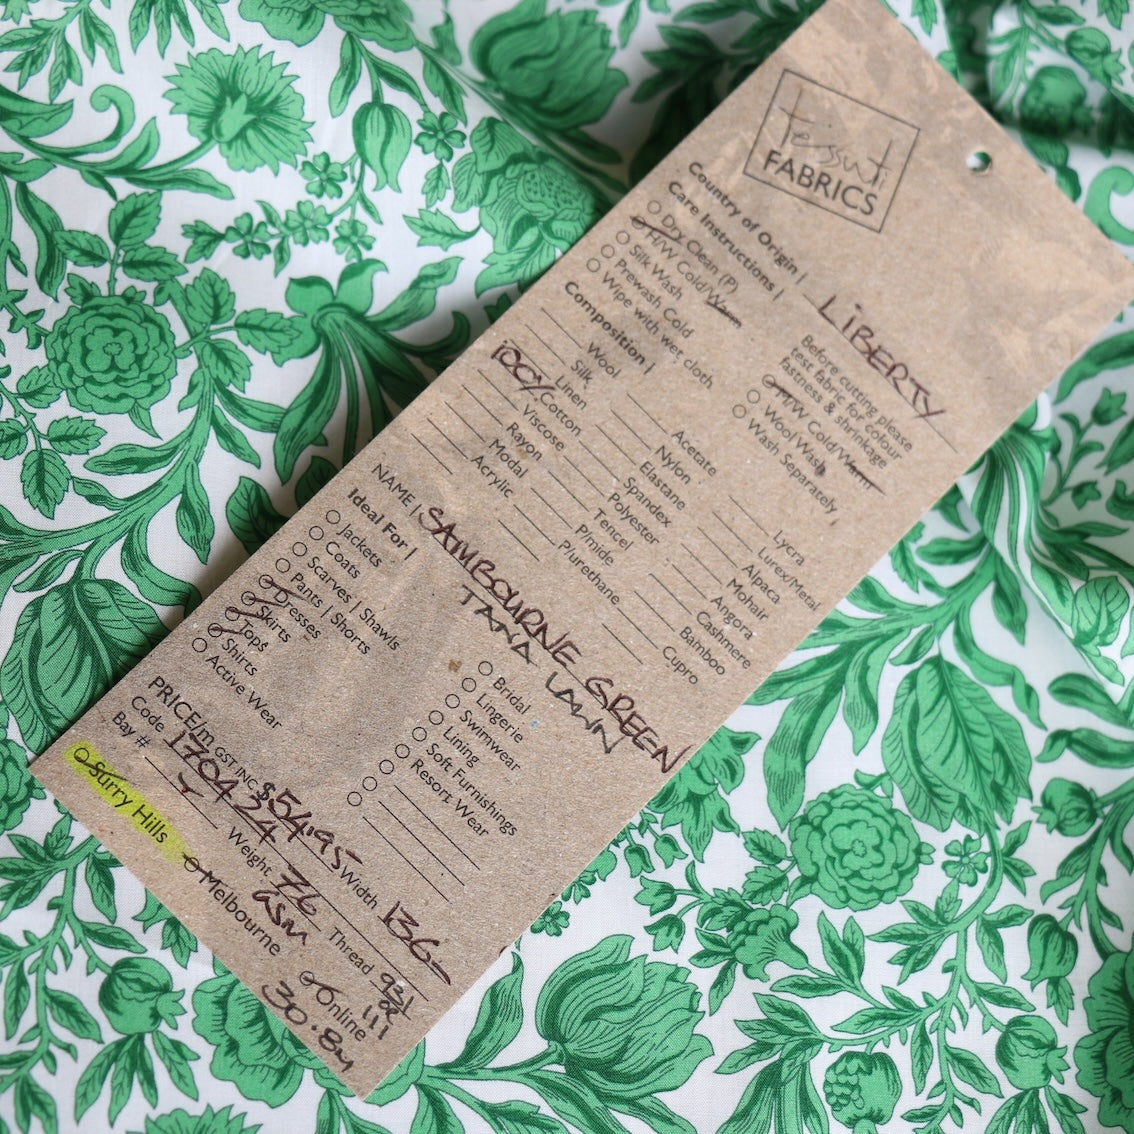 tessuti
FABRICS
Country of Origin | LIBERTY
Care Instructions |
Dry Clean (P)
H/W Cold/Warm
Silk Wash
Prewash Cold
Wipe with wet cloth
Before cutting please
test fabric for colour
fastness & shrinkage
H/W Cold/Warm
Wool Wash
Wash Separately
Composition |
Wool
Silk
Linen
100% Cotton
Viscose
Rayon
Modal
Acrylic
Acetate
Nylon
Elastane
Spandex
Polyester
Tencel
P/mide
P/urethane
Lycra
Lurex/Metal
Alpaca
Mohair
Angora
Cashmere
Bamboo
Cupro
NAME | SAMBOURNE GREEN
TANA LAWN
Ideal For |
Jackets
Coats
Scarves | Shawls
Pants | Shorts
Dresses
Skirts
Tops
Shirts
Active Wear
Bridal
Lingerie
Swimwear
Lining
Soft Furnishings
Resort Wear
PRICE/m GST INC $54.95 Width 136-
Code 1704324 Weight 76 gsm Thread 931
111
Bay #
Surry Hills Melbourne Online
30.8m